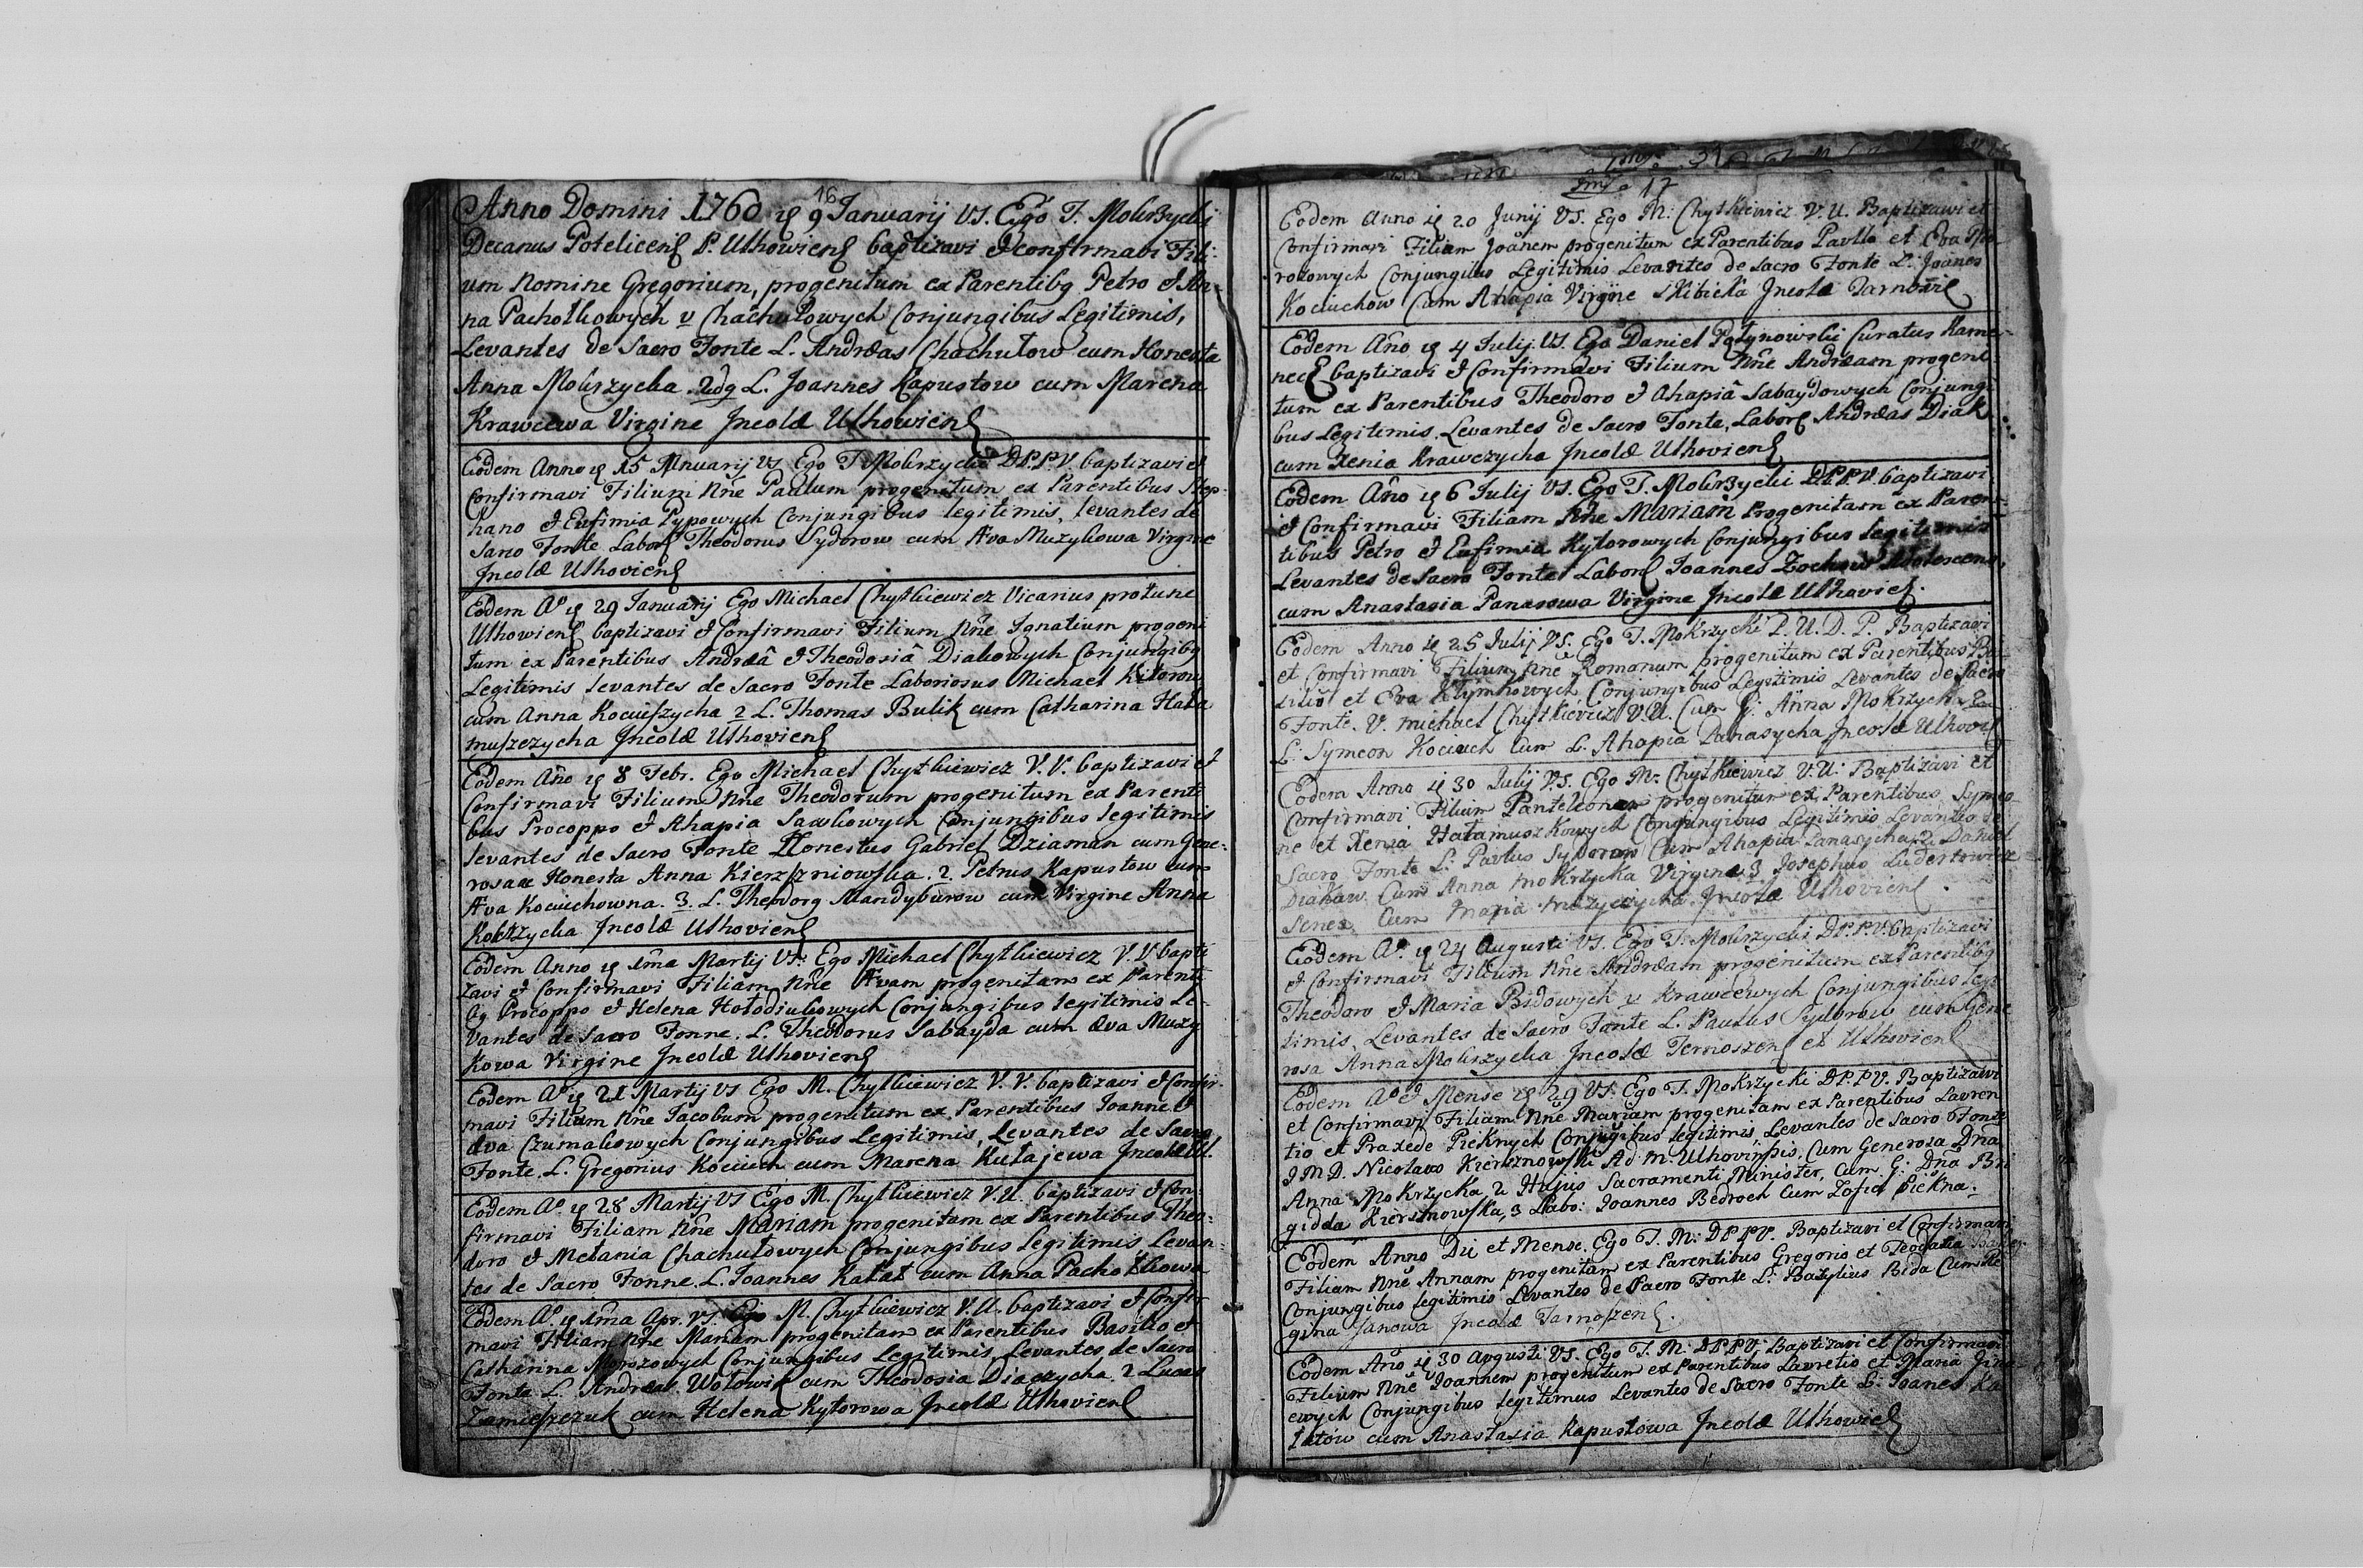 16
Anno Domini 1760 ię 9 Januarij VS. Ego T. Mokrzycki
Decanus Potelicens P. Uthowiens baptizavi & confirmavi Fili-
um Nomine Gregorium, progenitum ex Parentibg Petro & An-
na Pachotkowych v Chachutowych Conjungibus Legitimis,
Levantes de Sacro Fonte L. Andræas Chachutow cum Honesta
Anna Mokrzycka 2dg L. Joannes Kapustow cum Marena
Krawcewa Virgine Jncolæ Uthowiens
Eodem Anno ię 15 Januarij VS Ego T. Mokrzycki D.P.P.V. baptizavi &
Confirmavi Filium Nne Paulum progenitum ex Parentibus Step-
hano & Eufimia Pypowych Conjungibus legitimis, levantes de
Sacro Fonte Labors Theodorus Sydorow cum Æva Muzykowa Virgine
Jncolæ Uthoviens
Eodem Ao ię 29 Januarij Ego Michael Chytkiewicz Vicarius protunc
Uthowiens baptizavi & Confirmavi Filium Nne Ignatium progeni
tum ex Parentibus Andræâ & Theodosiâ Diakowych Conjungibg
Legitimis levantes de Sacro Fonte Laboriosus Michael Kitorow
cum Anna Kociuszycha 2 L. Thomas Bulik cum Catharina Hata
muszczycha Jncolæ Uthoviens
Eodem Año ię 8 Febr. Ego Michael Chytkiewicz V.V. baptizavi &
Confirmavi Filium Nne Theodorum progenitum ex Parenti
bus Procoppo & Ahapia Sawkowych Conjungibus legitimis
levantes de Sacro Fonte Honestus Gabriel Dziaman cum Gene-
rosa ac Honesta Anna Kierszniowska. 2. Petrus Kapustow cum
Æva Kociuchowna. 3. L. Theodorg Mandyburow cum Virgine Anna
Jncolæ Uthoviens
Eodem Anno ię 1ma Martij VS. Ego Michael Chytkiewicz V.V. bapti
zavi & Confirmavi Filiam Nne Ævam progenitam ex Parenti
bg Procoppo & Helena Hotodiukowych Conjungibus legitimis Le-
vantes de Sacro Fonne. L. Theodorus Sabayda cum Æva Muzy
kowa Virgine Jncolæ Uthoviens
Eodem Ao ię 21 Martij VS Ego M. Chytkiewicz V.V. baptizavi & Confir-
mavi Filium Nne Jacobum progenitum ex Parentibus Joanne &
Æva Czumakowych Conjungibus Legitimis, Levantes de Sacro
Fonte. L. Gregorius Kociuch cum Marena Kutajewa Jncolæ Ut.
Eodem Ao ię 28 Martij VS Ego M. Chytkiewicz V.U. baptizavi & Con-
firmavi Filiam Nne Mariam progenitam ex Parentibus Theo-
doro & Metania Chachutowych Conjungibus Legitimis Levan-
tes de Sacro Fonne. L. Joannes Katat cum Anna Pachotkowa
Eodem Ao ię 1ma Apr. VS. Ego M. Chytkiewicz V.U. baptizavi & Confir
mavi Filiam Nne Mariam progenitam ex Parentibus Basilio et
Catharina Conjungibus Legitimis Levantes de Sacro
Fonte L. Andreas Wotowik cum Theodosia Diaczycha 2 Lucas
cum Helena Kytorowa Jncolæ Uthoviens
17
Eodem Anno ię 20 Junij VS. Ego M: Chytkiewicz V.U. Baptizavi et
Confirmavi Filium Joânem progenitum ex Parentibus Paullo et Eva
rozowych Conjungibus Legitimis Levantes de Sacro Fonte L: Joânes
Kociuchow Cum Ahapia Virgine Skibicka Jncolæ
Eodem Año ię 4 Julij. VS. Ego Daniel Curatus Kame-
necs baptizavi & Confirmavi Filium Nne Andræam progeni-
tum ex Parentibus Theodoro & Ahapiâ Sabaydowych Conjungi
bus Legitimis. Levantes de Sacro Fonte, Labors Andræas Diak
cum Xenia Krawczycha Jncolæ Uthoviens
Eodem Año ię 6 Julij VS. Ego T. Mokrzycki D.P.P.V. baptizavi
& Confirmavi Filiam Nne Mariam Progenitam ex Paren-
tibus Petro & Eufimia Kytorowych Conjungibus legitimis
Levantes de Sacro Fonte Labors Joannes
cum Anastasia Panasowa Virgine Jncolæ Uthovies.
Eodem Anno ię 25 Julij VS. Ego T. Mokrzycki P.U.D.P. Baptizavi
et Confirmavi Filium Nne Romanum progenitum ex Parentibus Ba-
silio et Eva Klymkowych Conjungibus Legitimis Levantes de Sacro
Fonte. V. Michael Chytkievicz V.U. Cum G: Anna Mokrzycka
L: Symeon Kociuch Cum L. Ahapia Panasycha Jncolæ Uthovs
Eodem Anno ię 30 Julij VS. Ego M. Chytkiewicz V.U. Baptizavi et
Confirmavi Filium Panteleonem progenitum ex Parentibus Symeo
ne et Xenia Hatamuszkowych Conjungibus Legitimis Levantes de
Sacro Fonte L: Pavlus Sydorow Cum Ahapia Panasycha. 2 Daniel
Diakow Cum Anna Mokrzycka Virgine 3 Josephus
Senex Cum Maria Muzyczycha Jncolæ Uthoviens.
Eodem Ao. ię 24 Augusti VS. Ego T. Mokrzycki D.P.P.V. baptizavi
& Confirmavi Filium Nne Andræam progenitum ex Parentibg
Theodoro & Maria Bidowych v Krawcewych Conjungibus legi
timis, Levantes de Sacro Fonte L. Paulus Sydorow cum Gene
rosa Anna Mokrzycka Jncolæ Ternoszens et Uthoviens
Eodem Ao & Mense ię 29 VS. Ego T. Mokrzycki D.P.P.V. Baptizavi
et Confirmavi Filiam Nne Mariam progenitam ex Parentibus Lavren
tio et Praxede Pieknych Conjugibus legitimis, Levantes de Sacro Fonte
J.M.D. Nicolaus Kiersznowski Ad: M. Uthovinsis. Cum Generosa Dna
Anna Mokrzycka 2 Hujus Sacramenti Minister, Cum G: Dna Bri
gidda Kiersznowska, 3 Labo: Joannes Bedroch Cum Zofia Piekna.
Eodem Anno Die et Mense. Ego T. M: D.P.P.V. Baptizavi et Confirmavi
Filiam Nne Annam progenitam ex Parentibus Gregorio et Teodozia
Conjungibus legitimis Levantes de Sacro Fonte L: Bazylius Bida Cum Re
gina Janowa Jncolæ Tarnoszens.
Eodem Año ię 30 Augusti VS. Ego T. M: D.P.P.V. Baptizavi et Confirmavi
Filium Nne Joannem progenitum ex Parentibus Lavretio et Maria
ewych Conjungibus legitimus Levantes de Sacro Fonte L: Joanes Ka
tatów cum Anastasia Kapustowa Jncolæ Uthovies